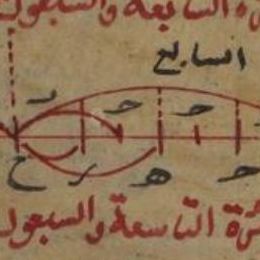 السابعة والسبعون
السابع
د ح ح
ح ر ه ح
التاسعة والسبعون